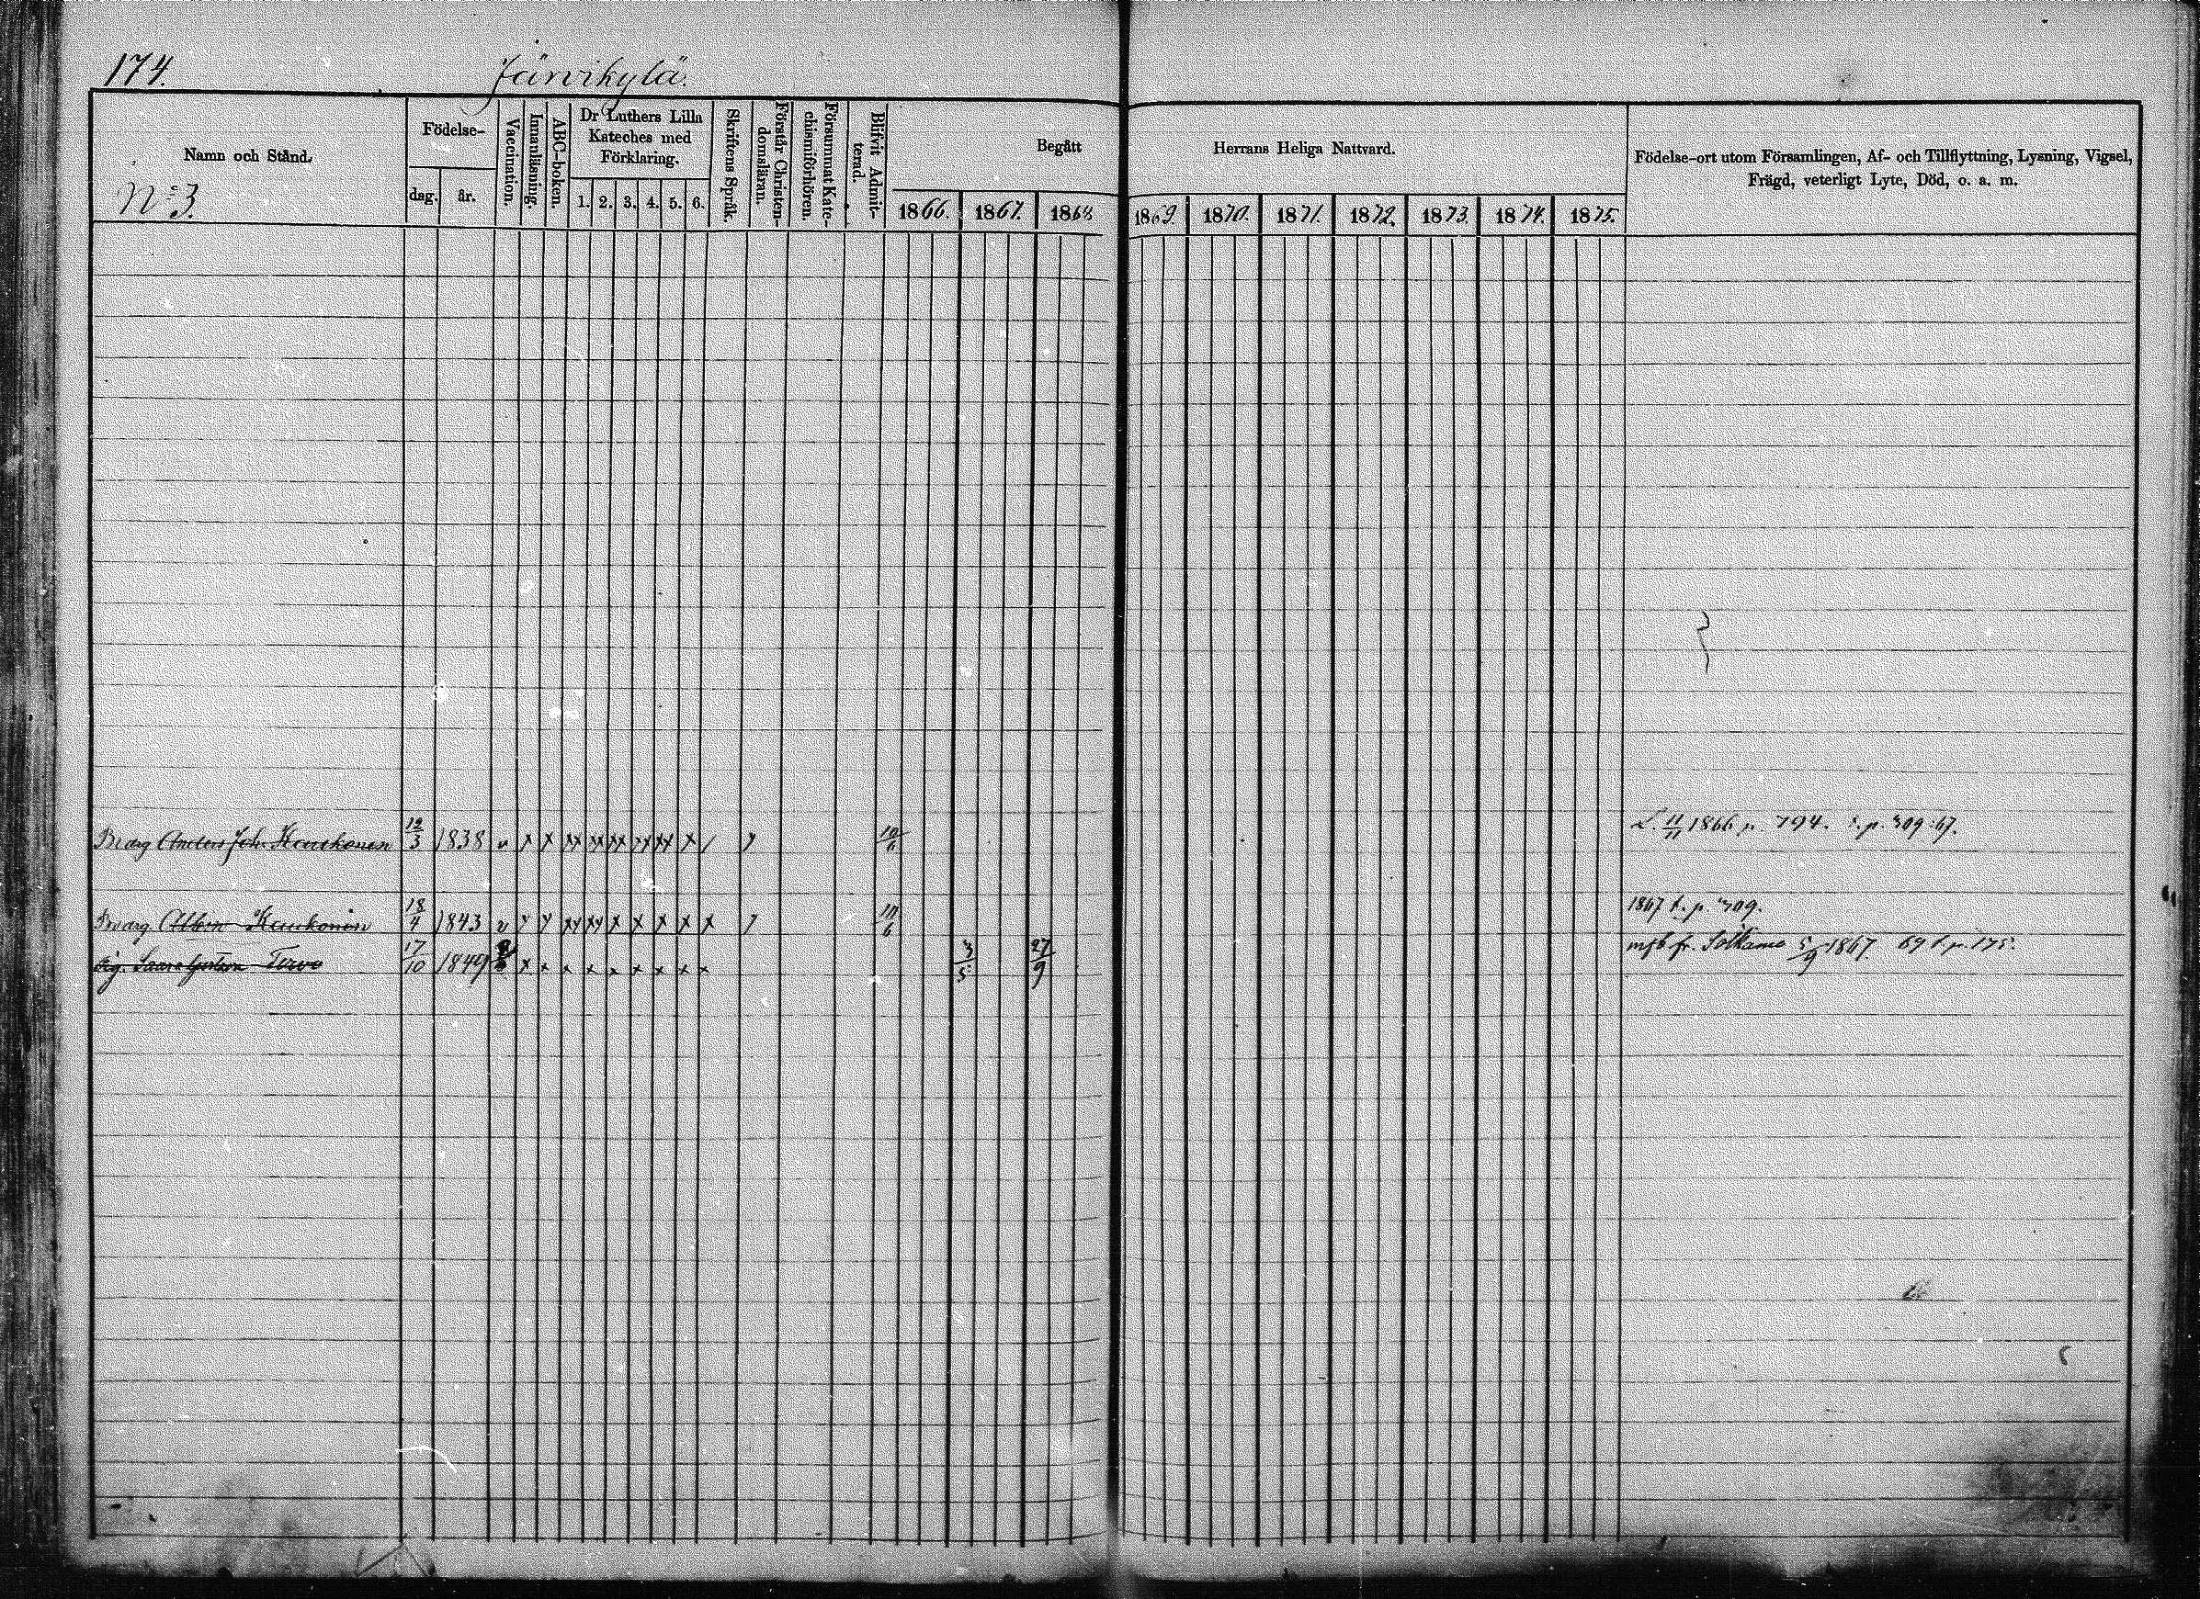 174.
Järvikylä.
Namn och Stånd.
N:o 3.
Födelse-
dag.
år.
Vaccination.
Innanläsning.
ABC-boken.
Dr Luthers Lilla
Kateches med
Förklaring.
1. 2. 3. 4. 5. 6.
Skriftens Språk.
Förstår Christen-
domsläran.
Försummat Kate-
chismiförhören.
Blifvit Admit-
terad.
Begått Herrans Heliga Nattvard.
1866. 1867. 1868. 1869. 1870. 1871. 1872. 1873. 1874. 1875.
Födelse-ort utom Församlingen, Af- och Tillflyttning, Lysning, Vigsel,
Frägd, veterligt Lyte, Död, o. a. m.
Anders Joh. Keukonen 12/3 1838 v x x xx xx xx xx xx x / 10/6 11/11 1866 p. 794. p. 309.67.
Keukonen 18/4 1843 v xx xx x x x x x 10/6 1867 t. p. 309.
Pig. Saara Tervo 17/10 1849 x x x x x x x x x 3/5 27/9 mfb fr. Sotkamo 5/9 1867. 69 t. p. 175.